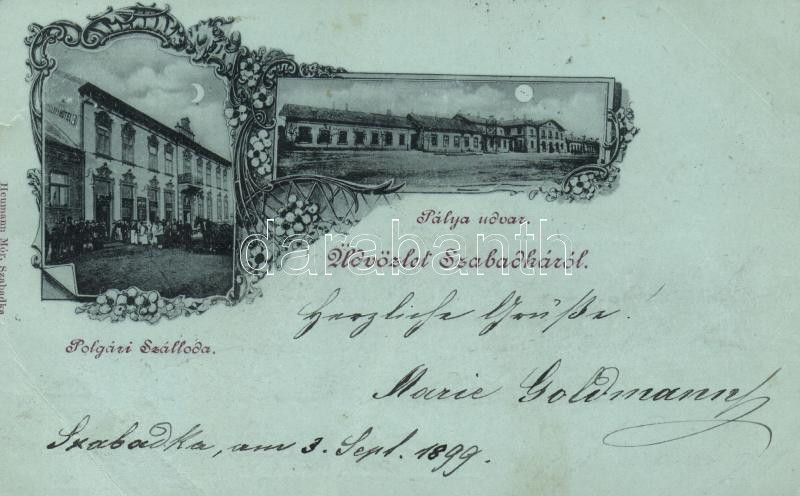 Pálya udvar.
Üdvözlet Szabadkáról.
Polgári Szálloda.
Heumann Mór, Szabadka
darabanth.com
Herzliche Grüße!
Marie Goldmann
Szabadka, am 3. Sept. 1899.